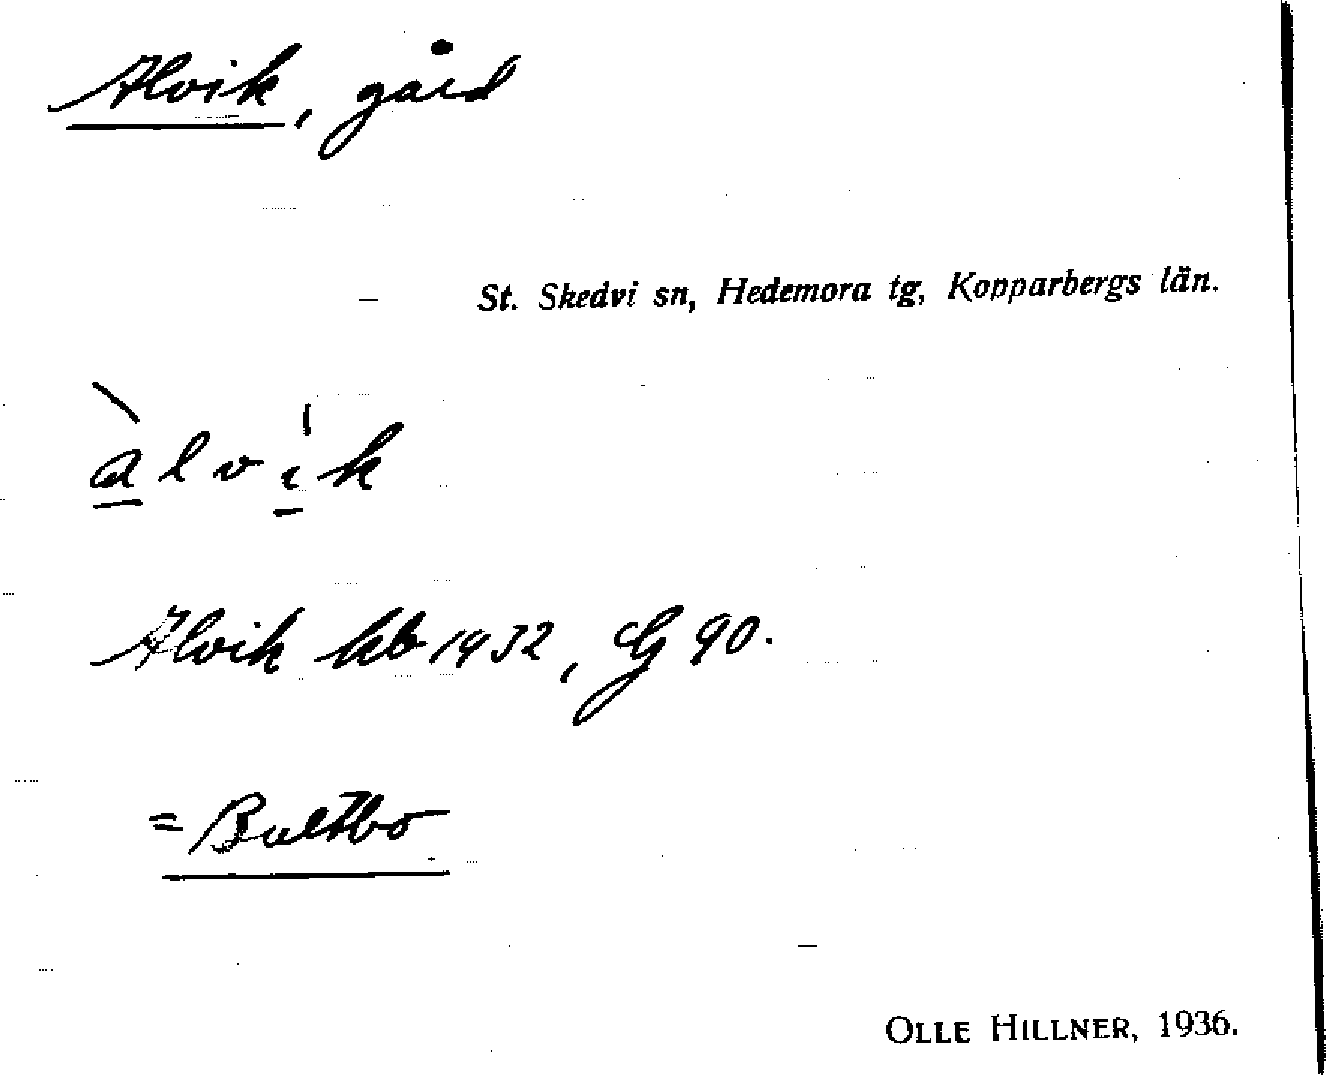 Alvik, gård
St. Skedvi sn, Hedemora tg, Kopparbergs län.
àlvík
Alvik kb 1932, G 90.
= Bultbo
OLLE HILLNER, 1936.